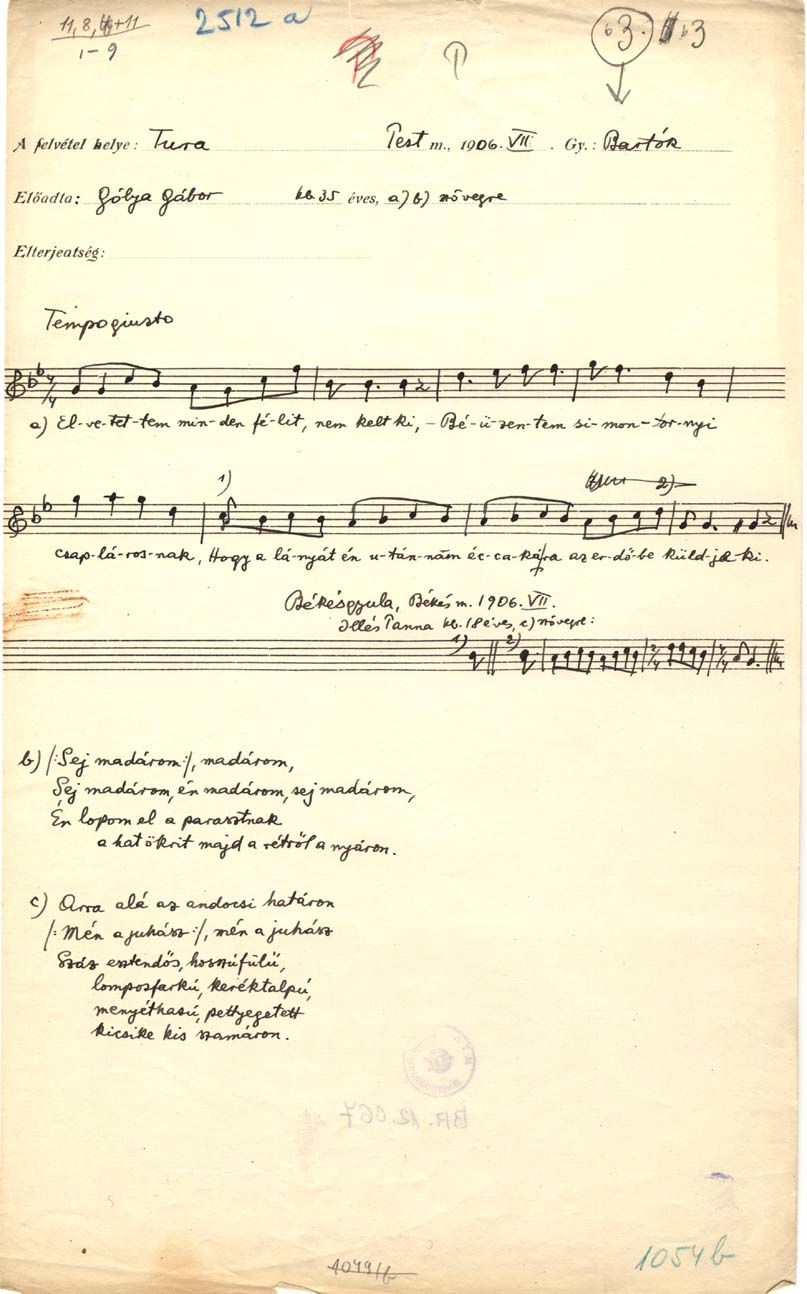 11, 8, 4+11
1-9
2512 a
P
b3. b3
A felvétel helye: Tura Pest m., 1906. VII. Gy.: Bartók
Előadta: Gólya Gábor kb. 35 éves, a) b) szövegre
Elterjedtség:
Tempo giusto
a) El-ve-tet-tem min-den fé-lit, nem kelt ki, – Bé-ü-zen-tem si-mon-tor-nyi
1) 2)
csap-lá-ros-nak, Hogy a lá-nyát én u-tán-nam éc-ca-ká-ra az er-dő-be küld-je ki.
Békésgyula, Békés m. 1906. VII.
Illés Panna kb. 18 éves, c) szövegre:
1) 2)
b) /:Sej madárom:/, madárom,
Sej madárom, én madárom, sej madárom,
Én lopom el a parasztnak
a hat ökrit majd a rétről a nyáron.
c) Arra alá az andocsi határon
/:Mén a juhász:/, mén a juhász
Száz esztendős, hosszúfülű,
lomposfarkú, keréktalpú,
menyéthasú, pettyegetett
kicsike kis szamáron.
BR. 12.667
1049/b
1054 b